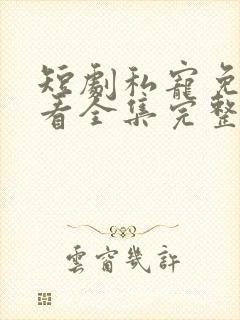 短劇私寵免
看全集完整
雲窗幾許